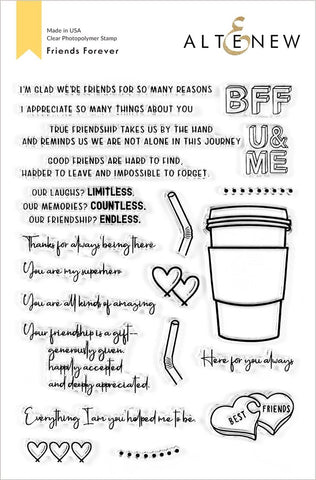 Made in USA
Clear Photopolymer Stamp
Friends Forever
ALTENEW
I'M GLAD WE'RE FRIENDS FOR SO MANY REASONS
I APPRECIATE SO MANY THINGS ABOUT YOU
BFF
TRUE FRIENDSHIP TAKES US BY THE HAND
AND REMINDS US WE ARE NOT ALONE IN THIS JOURNEY
U&
ME
GOOD FRIENDS ARE HARD TO FIND,
HARDER TO LEAVE AND IMPOSSIBLE TO FORGET.
OUR LAUGHS? LIMITLESS.
OUR MEMORIES? COUNTLESS.
OUR FRIENDSHIP? ENDLESS.
Thanks for always being there
You are my superhero
You are all kinds of amazing
Your friendship is a gift—
generously given,
happily accepted
and deeply appreciated.
Here for you always
Everything I am you helped me to be.
BEST
FRIENDS